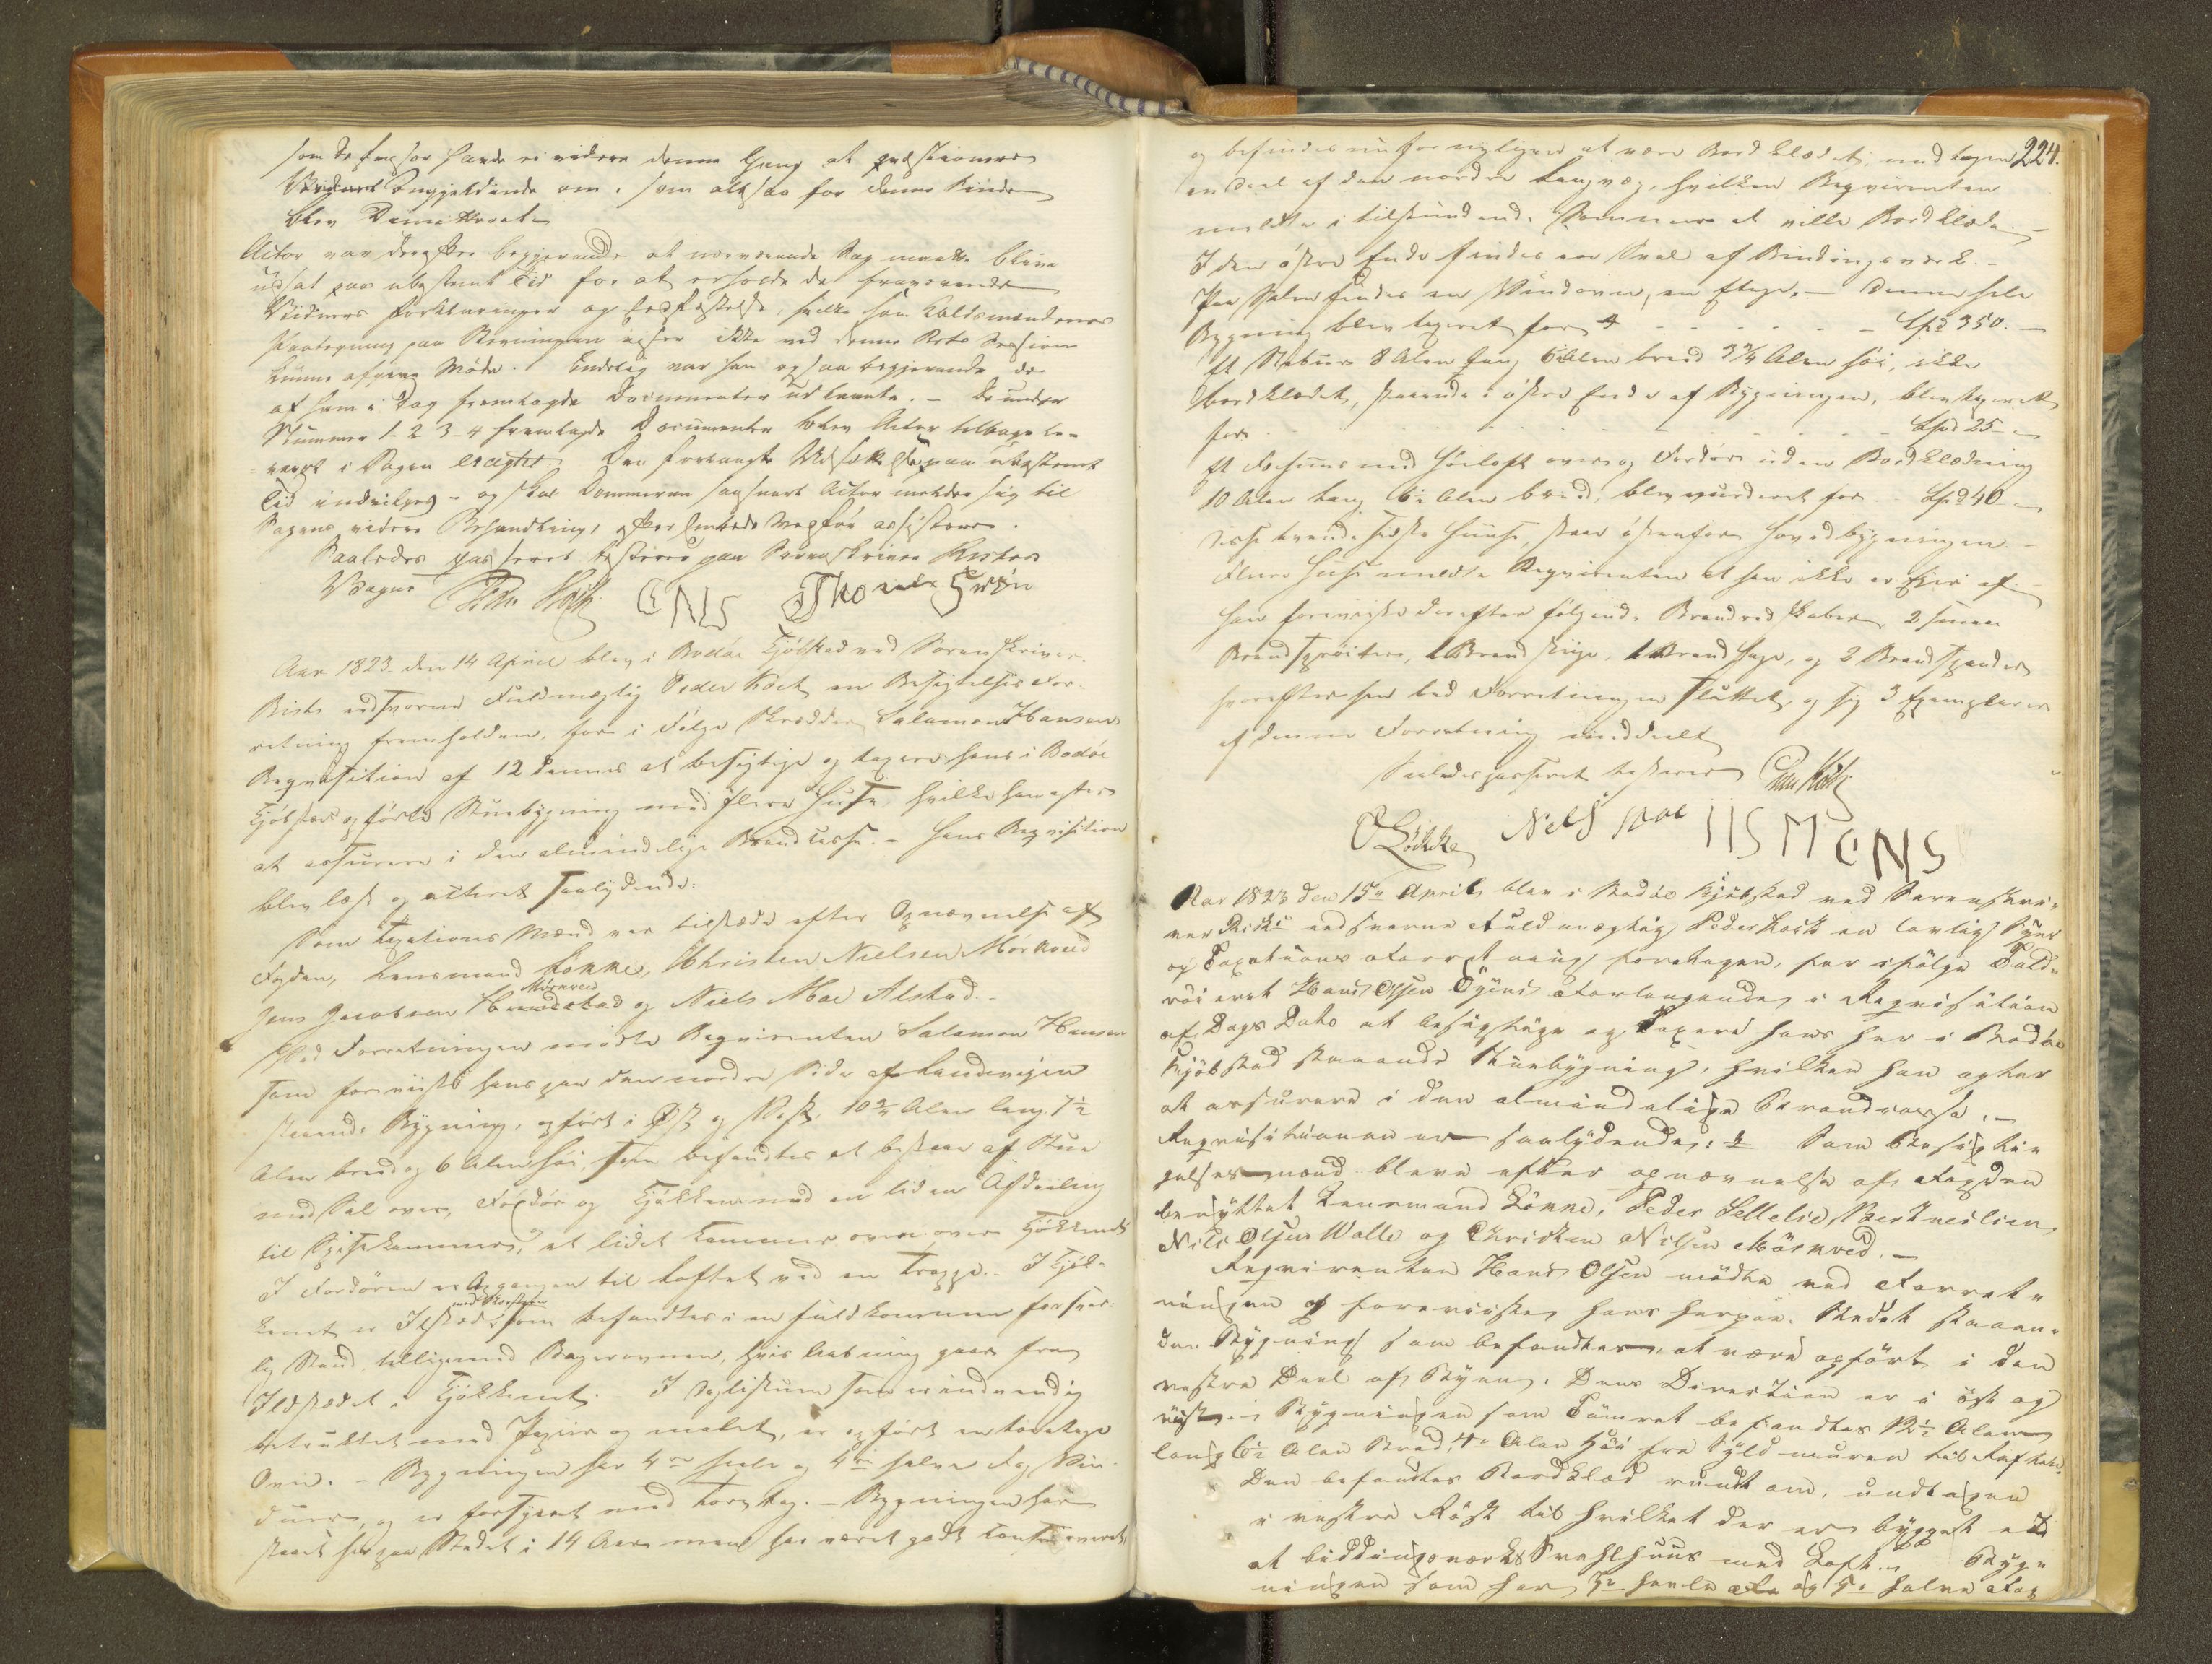 som Defensor havde ei videre denne Gang at qvæstionere
Vidnet angjeldende om, som altsaa for denne Sinde
blev Demitteret
Actor var derefter begjerende at nærværende Sag maatte blive
udsat paa ubestemt Tid for at erholde de fraværende
Vidners Forklaringer og Edfæstelse, hvilke som Kaldsmændenes
Paategning paa Stevningen viser ikke ved denne Rets Session
kunne afgive Møde. Endelig var han ogsaa begjerende de
af ham i Dag fremlagde Documenter udleverte. – De under
Nummer 1– 2 3– 4 fremlagde Documenter blev Actor tilbage le-
veret i Sagen Den forlangte Udsættelse paa ubestemt
Tid indvilges – og skal Dommeren saasnart Actor melder sig til
Sagens videre Behandling,
Saaledes passeret testerer paa Sorenskriver Rists
Vegne Peder Koch CNS Thomes Grøn
Aar 1823 den 14 April blev i Bodøe Kjøbstad ved Sorenskriver
Rists edsvorne Fuldmægtig Peder Koch en Besigtelses For-
retning fremholden, for i Følge Skrædder Salamon Hansens
Reqvisition af 12 dennes at besigtige og taxere hans i Bodøe
Kjøbstad opførte Stuebygning med flere Huse, hvilke han agter
at assurere i den almindelige Brandcasse. – Hans Reqvisition
blev læst og acteret saalydende:
Som Taxations Mænd var tilstæde efter Opnævnelse af
Fogden, Lensmand Lønne, Christen Nielsen Mørkved
Jens Jacobsen Mørkved og Niels Moe Alstad. –
Ved Forretningen mødte Reqvirenten Salamon Hansen
som foreviiste hans paa den nordre Side af Landeveien
staaende Bygning, opført i Øst og Vest, 10 3/4 Alen lang 7 1/2
Alen bred og 6 Alen høi, som befandtes at bestaae af Stue
med Sal over, Fordør og Kjøkken med en liden Afdeeling
til Spisekammer, og et lidet Kammer oven over Kjøkkenet
I Fordøren er Opgangen til Loftet ved en Trappe. I Kjøk-
kenet er Ildsted med Skorsteen som befandtes i en fuldkommen forsvar-
lig Stand, tilligemed Bagerovnen, hvis Aabning gaar fra
Ildstedet i Kjøkkenet. – I Dagligstuen som er indvendig
betrukket med Papiir og malet, er opført en toetages
Ovn. – Bygningen har 4re heele og 4re halve Fag Vin-
duer, og er forsynet med Torvtag. – Bygningen har
staaet her paa Stedet i 14 Aar men har været godt conserveret
224.
og befindes nu for nyligen at være Bord klædet, undtagen
en Deel af den nordre Langvæg, hvilken Reqvirenten
meldte i tilstundende Sommer at ville Bordklæde. –
I den østre Ende findes en Sval af Bindingsverk. –
Paa Salen findes en Vindovn, en Etage. – Denne hele
Bygning blev taxeret for – – – – – – Spd 350. –
Et Stabuur 8 Alen lang 6 Alen breed 3 3/4 Alen høi, ikke
bordklædet, staaende i østre Ende af Bygningen, blev taxeret
for – – – – – – – – – – Spd 25 –
Et Fæhuus med Høeloft over og Fordør uden Bordklædning
10 Alen lang 6 1/2 Alen bred, blev vurderet for – Spd 40 –
Disse tvende sidste Huuse, staar østenfor Hovedbygningen. –
Flere Huse meldte Reqvirenten at han ikke er Eier af –
Han foreviiste derefter følgende Brandredskaber, 2 smaae
Brandsprøiter, 1 Brandstige, 1 Brandhage, og 2 Brandspander
hvorefter han bad Forretningen sluttet, og sig 3 Exemplarer
af denne Forretning meddeelt
Saaledes passeret testerer Peder Koch
O Lødike Nels Moe IIS M CNS
Aar 1823 den 15de April blev i Bodøe Kjøbstad ved Sorenskri-
ver Rists edsvorne Fuldmægtig Peder Koch en lovlig Syns
og Taxations Forretning foretagen, for ifølge Told-
roier Hans Olsen Øyens Forlangende i Reqvisition
af Dags Dato at besigtige og Taxere hans her i Bodøe
Kjøbstad staaende Stuebygning, hvilken han agter
at assurere i den almindelige Brandcasse. –
Reqvisitionen er saalydende: Som Besigti-
gelses mænd bleve efter opnævnelse af Fogden
benyttet Lensmand Lønne, Peder Sellelie,
Nils Olsen Walle og Christen Nilsen Mörkved. –
Reqvirenten Hans Olsen mödte ved Forret-
ningen og foreviiste hans herpaa Stedet staaen-
de Bygning som befandtes at være opført i den
vestre Deel af Byen. Dens Direction er i öst og
vest. Bygningen som Tömret befandtes 12 1/2 Alen
lang 6 1/2 Alen Bred, 4 Alen höi fra Syldmuren til Raftet.
Den befandtes Bordklæd rundt om, undtagen
i vestre Röst til hvilket der er bygget
et biddingsværks Svahlhuus med Loft. Byg-
ningen som har 5 heele og 5 halve Fag